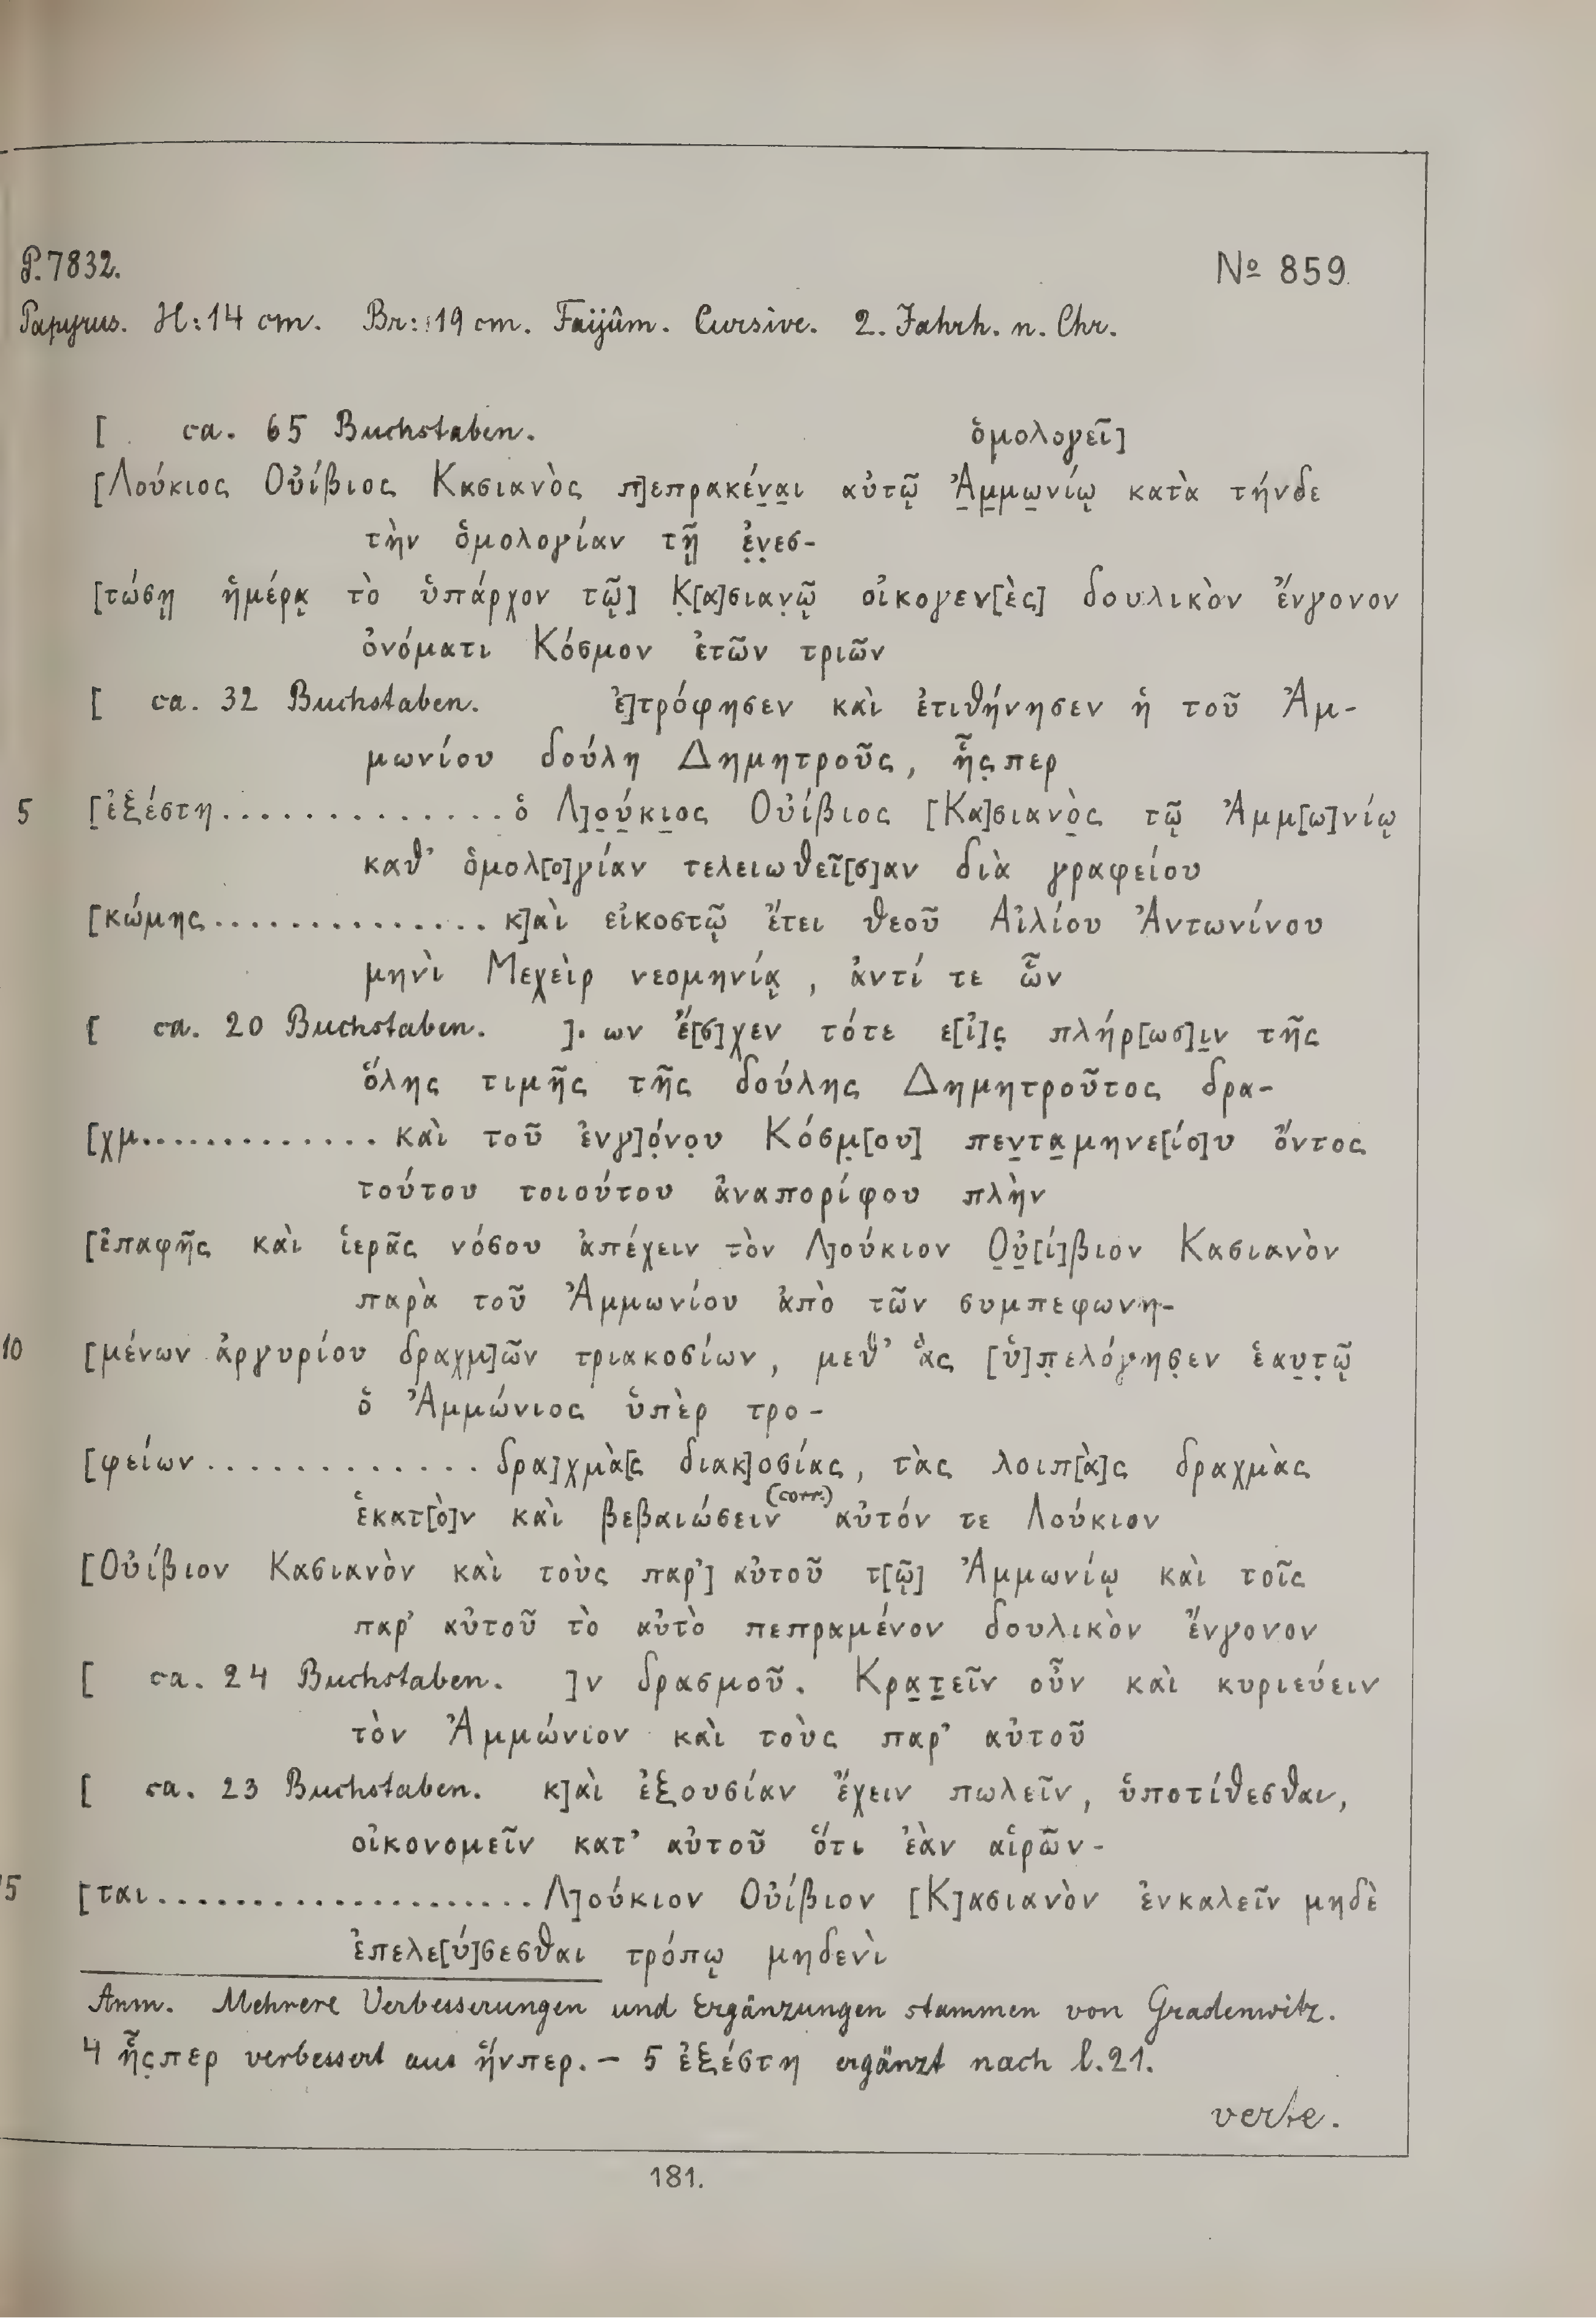 P. 7832.
№ 859.
Papyrus. H: 14 cm. Br: 19 cm. Faijûm. Cursive. 2. Jahrh. n. Chr.
[ ca. 65 Buchstaben. ὁμολογεῖ]
[Λούκιος Οὐίβιος Κασιανὸς π]επρακέν̣α̣ι αὐτῷ Ἀ̣μ̣μω̣νίῳ κατὰ τήνδε
τὴν ὁμολογίαν τῇ ἐ̣ν̣εσ-
[τώσῃ ἡμέρᾳ τὸ ὑπάρχον τῷ] Κ̣[α]σιαν̣ῷ οἰκογεν[ὲς] δουλικὸν ἔνγονον
ὀνόματι Κόσμον ἐτῶν τριῶν
[ ca. 32 Buchstaben. ἐ]τρόφησεν καὶ ἐτιθήνησεν ἡ τοῦ Ἀμ-
μωνίου δούλη Δημητροῦς, ἧς̣περ
5 [ἐξέστη.............ὁ Λ]ο̣ύ̣κι̣ος Οὐίβιος [Κα]σιανὸ̣ς τῷ Ἀμμ[ω]νίῳ
καθ’ ὁμολ[ο]γίαν τελειωθεῖ[σ]αν διὰ γραφείου
[κώμης.............. κ]αὶ εἰκοστῷ ἔτει θεοῦ Αἰλίου Ἀντωνίνου
μηνὶ Μεχεὶρ νεομηνίᾳ, ἀντί τε ὧν
[ ca. 20 Buchstaben. ]. ων ἔ[σ]χεν τότε ε[ἰ]ς̣ πλήρ[ωσ]ι̣ν τῆς
ὅλης τιμῆς τῆς δούλης Δημητροῦτος δρα-
[χμ............. καὶ τοῦ ἐνγ]ό̣νο̣υ Κόσμ̣[ου] πεν̣τα̣μηνε[ίο]υ ὄντος
τούτου τοιούτου ἀναπορίφου πλὴν
[ἐπαφῆς καὶ ἱερᾶς νόσου ἀπέχειν τὸν Λ]ούκιον Ο̣ὐ̣[ί]βιον Κασιανὸν
παρὰ τοῦ Ἀμμωνίου ἀπὸ τῶν συμπεφωνη-
10 [μένων ἀργυρίου δραχμ]ῶν τριακοσίων, μεθ’ ἃς [ὑ]π̣ελόγησ̣εν ἑαυ̣τ̣ῷ
ὁ Ἀμμώνιος ὑπὲρ τρο-
[φείων............ δρα]χμὰ[ς διακ]οσίας, τὰς λοιπ[ὰ]ς δραχμὰς
ἑκατ[ὸ]ν καὶ βεβαιώσειν (corr.) αὐτόν τε Λούκιον
[Οὐίβιον Κασιανὸν καὶ τοὺς παρ’] αὐτοῦ τ[ῷ] Ἀμμωνίῳ καὶ τοῖς
παρ’ αὐτοῦ τὸ αὐτὸ πεπραμένον δουλικὸν ἔνγονον
[ ca. 24 Buchstaben. ]ν δρασμοῦ. Κρα̣τ̣εῖν οὖν καὶ κυριεύειν
τὸν Ἀμμώνιον καὶ τοὺς παρ’ αὐτοῦ
[ ca. 23 Buchstaben. κ]αὶ ἐξουσίαν ἔχειν πωλεῖν, ὑποτίθεσθαι,
οἰκονομεῖν κατ’ αὐτοῦ ὅτι ἐὰν αἱρῶν-
5 [ται.................... Λ]ούκιον Οὐίβιον [Κ]ασιανὸν ἐνκαλεῖν μηδὲ
ἐπελε[ύ]σεσθαι τρόπῳ μηδενὶ
Anm. Mehrere Verbesserungen und Ergänzungen stammen von Gradenwitz.
4 ἧς̣περ verbessert aus ἥνπερ. – 5 ἐξέστη ergänzt nach l. 21.
verte.
181.